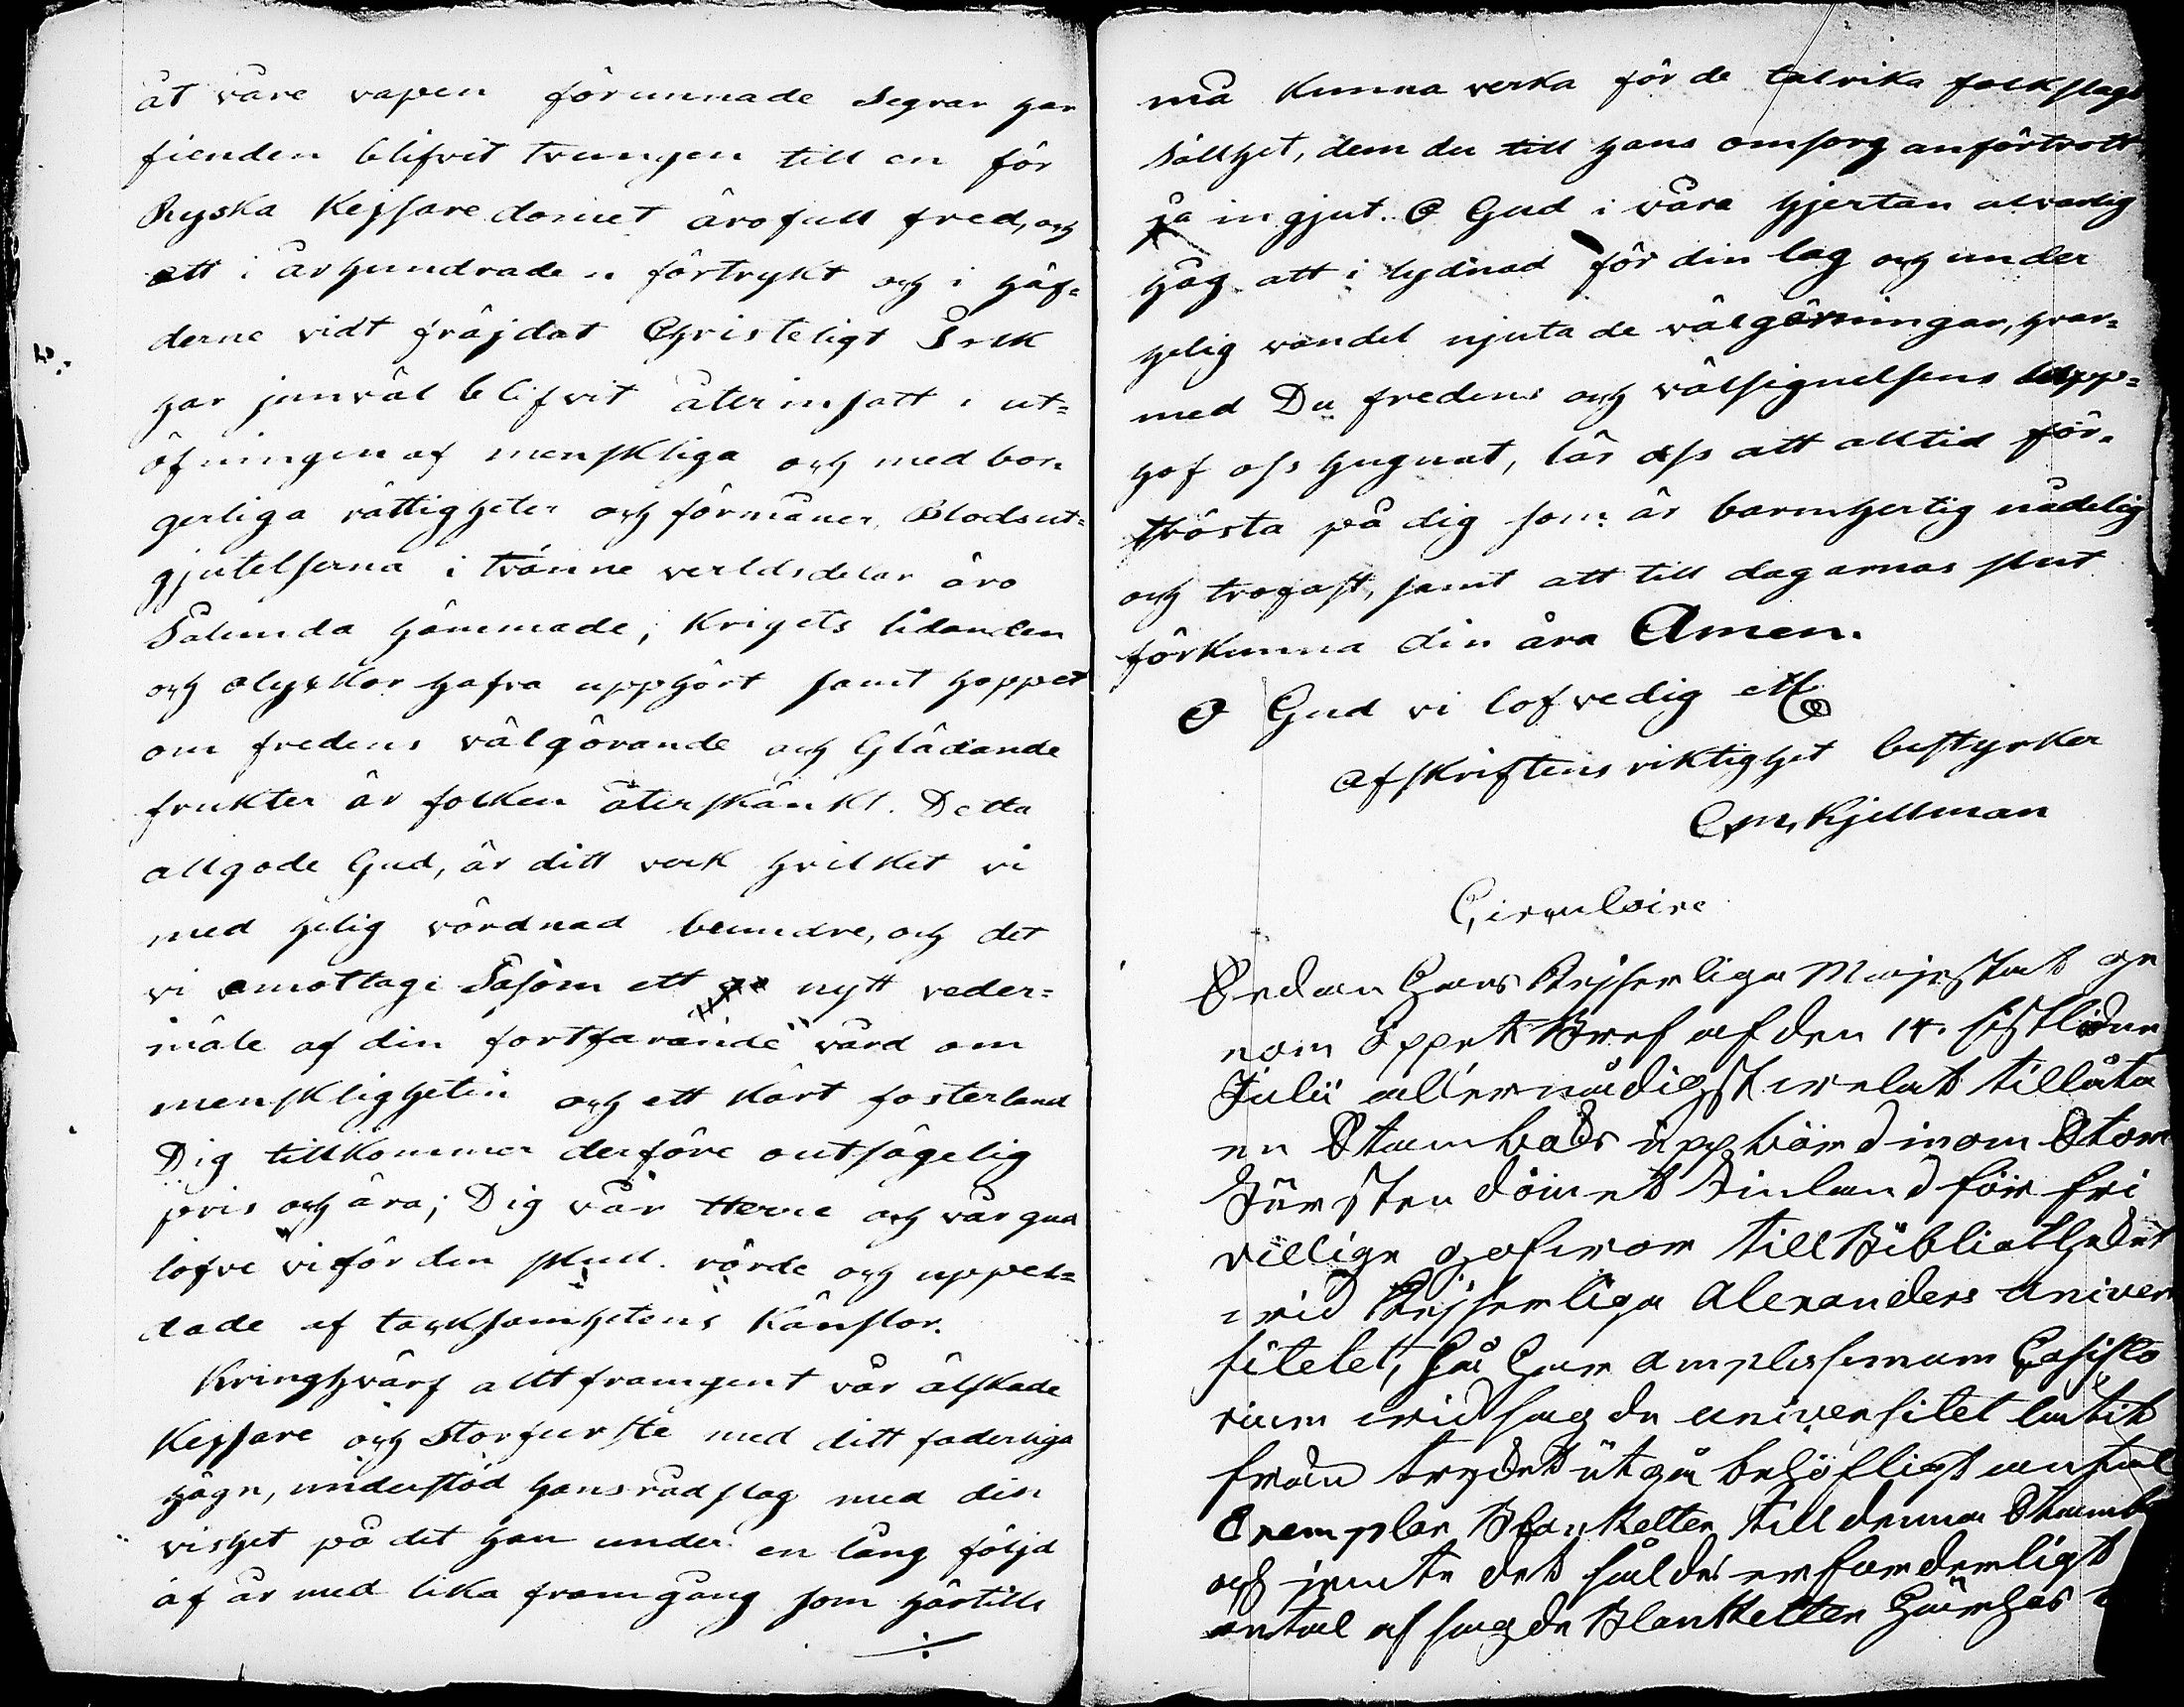 åt våre vapen förunnade Segrar har
fienden blifvit tvungen till en för
Ryska Kejsaredomet ärofull fred, och
ett i århundraden förtrykt och i häf-
derne vidt fräjdat Christeligt Folk
har jemväl blifvit återinsatt i ut-
öfningen af menskliga och medbor-
gerliga rättigheter och förmåner. Blodsut-
gjutelserna i tvänne verldsdelar äro
Sålunda hämmade, krigets lidanden
och olyckor hafva upphört samt hoppet
om fredens välgörande och Glädande
frukter är folken återskänkt. Detta
allgode Gud, är ditt verk hvilket vi
med helig vördnad beundre, och det
vi emottage Såsom ett nytt veder-
mäle af din fortfarande vård om
menskligheten och ett kärt fosterland
Dig tillkommer derföre outsägelig
pris och ära; Dig vår Herre och vår gud
lofve vi för den skull. rörde och uppel-
dade af tacksamhetens känslor.
Kringhvärf allt framgent vår älskade
Kejsare och Storfurste med ditt faderliga
hägn, understöd hans rådslag med din
vishet på det han under en lång följd
af år med lika framgång som härtills
må kunna verka för de talrika folkslags
Sällhet, dem du till hans omsorg anförtrott
ja ingjut. O Gud i våra hjertan alvarlig
håg att i lydnad för din lag och under
helig vandel njuta de välgörningar, hvar-
med Du fredens och välsignelsens upp-
hof oss hugnat, lär oss att alltid för-
trösta på dig som är barmhertig nådelig
och trofast, samt att till dagarnas slut
förkunna din ära Amen.
O Gud vi lofve dig etc
Afskriftens riktighet bestyrker
Kjellman
Circulaire
Sedan Hans Kejserliga Majestät ge
nom Öppet Bref af den 14. sistlidne
Julii allernådigst velat tillåta
en Stamboks uppbörd inom Stor
Furstendömet Finland för fri
villige gåfvor till Bibliotheket
vid Kejserliga Alexanders Univer
sitetet, Så har Amplissimum Consisto
rium vid sagde universitet låtit
från trycket utgå behöfligt antal
Exemplar Blanketter till denna Stamb
och jemte det således erforderligt
antal af sagde Blanketter härhos